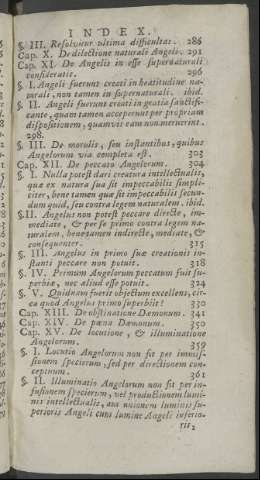 INDEX.
§. III. Resolvitur ultima difficultas. 286
Cap. X. De dilectione naturali Angelor. 291
Cap. XI. De Angelis in esse supernaturali
consideratis. 296
§. I. Angeli fuerunt creati in beatitudine na-
turali, non tamen in supernaturali. ibid.
§. II. Angeli fuerunt creati in gratia sanctifi-
cante, quam tamen acceperunt per propriam
dispositionem, quamvis eam non meruerint.
298.
§. III. De morulis, seu instantibus, quibus
Angelorum via completa est. 302
Cap. XII. De peccato Angelorum. 304
§. I. Nulla potest dari creatura intellectualis,
quæ ex natura sua sit impeccabilis simpli-
citer, bene tamen quæ sit impeccabilis secun-
dum quid, seu contra legem naturalem. ibid.
§. II. Angelus non potest peccare directe, im-
mediate, & per se primo contra legem na-
turalem, bene tamen indirecte, mediate, &
consequenter. 315
§. III. Angelus in primo suæ creationis in-
stanti peccare non potuit. 318
§. IV. Primum Angelorum peccatum fuit su-
perbiæ, nec aliud esse potuit. 324
§. V. Quidnam fuerit objectum excellens, cir-
ca quod Angelus primo superbiit? 330
Cap. XIII. De obstinatione Dæmonum. 341
Cap. XIV. De pœna Dæmonum. 350
Cap. XV. De locutione, & illuminatione
Angelorum. 359
§. I. Locutio Angelorum non fit per immis-
sionem specierum, sed per directionem con-
ceptuum. 361
§. II. Illuminatio Angelorum non fit per in-
fusionem specierum, vel productionem lumi-
nis intellectualis, aut unionem luminis su-
perioris Angeli cum lumine Angeli inferio-